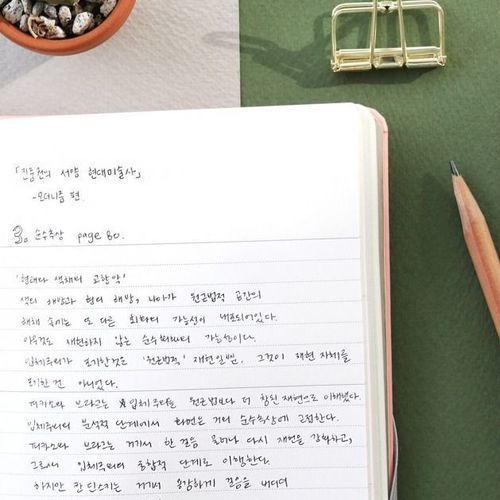 「진중권의 서양 현대미술사」
- 모더니즘 편.
3. 순수추상 page 80.
'형태와 색채의 교향악'
색의 해방과 형의 해방, 나아가 원근법적 공간의
해체 속에는 또 다른 회화의 가능성이 내포되어있다.
아무것도 재현하지 않는 순수회화의 가능성이다.
입체주의가 포기한것은 '원근법적' 재현일뿐, 그것이 재현 자체를
포기한 건 아니었다.
피카소와 브라크는 입체주의를 원근법보다 더 참된 재현으로 이해했다.
입체주의의 분석적 단계에서 화면은 거의 순수추상에 근접한다.
피카소와 브라크는 거기서 한 걸음 물러나 다시 재현을 강화하고,
그로써 입체주의의 종합적 단계로 이행한다.
하지만 칸딘스키는 거기서 용감하게 걸음을 내디뎌